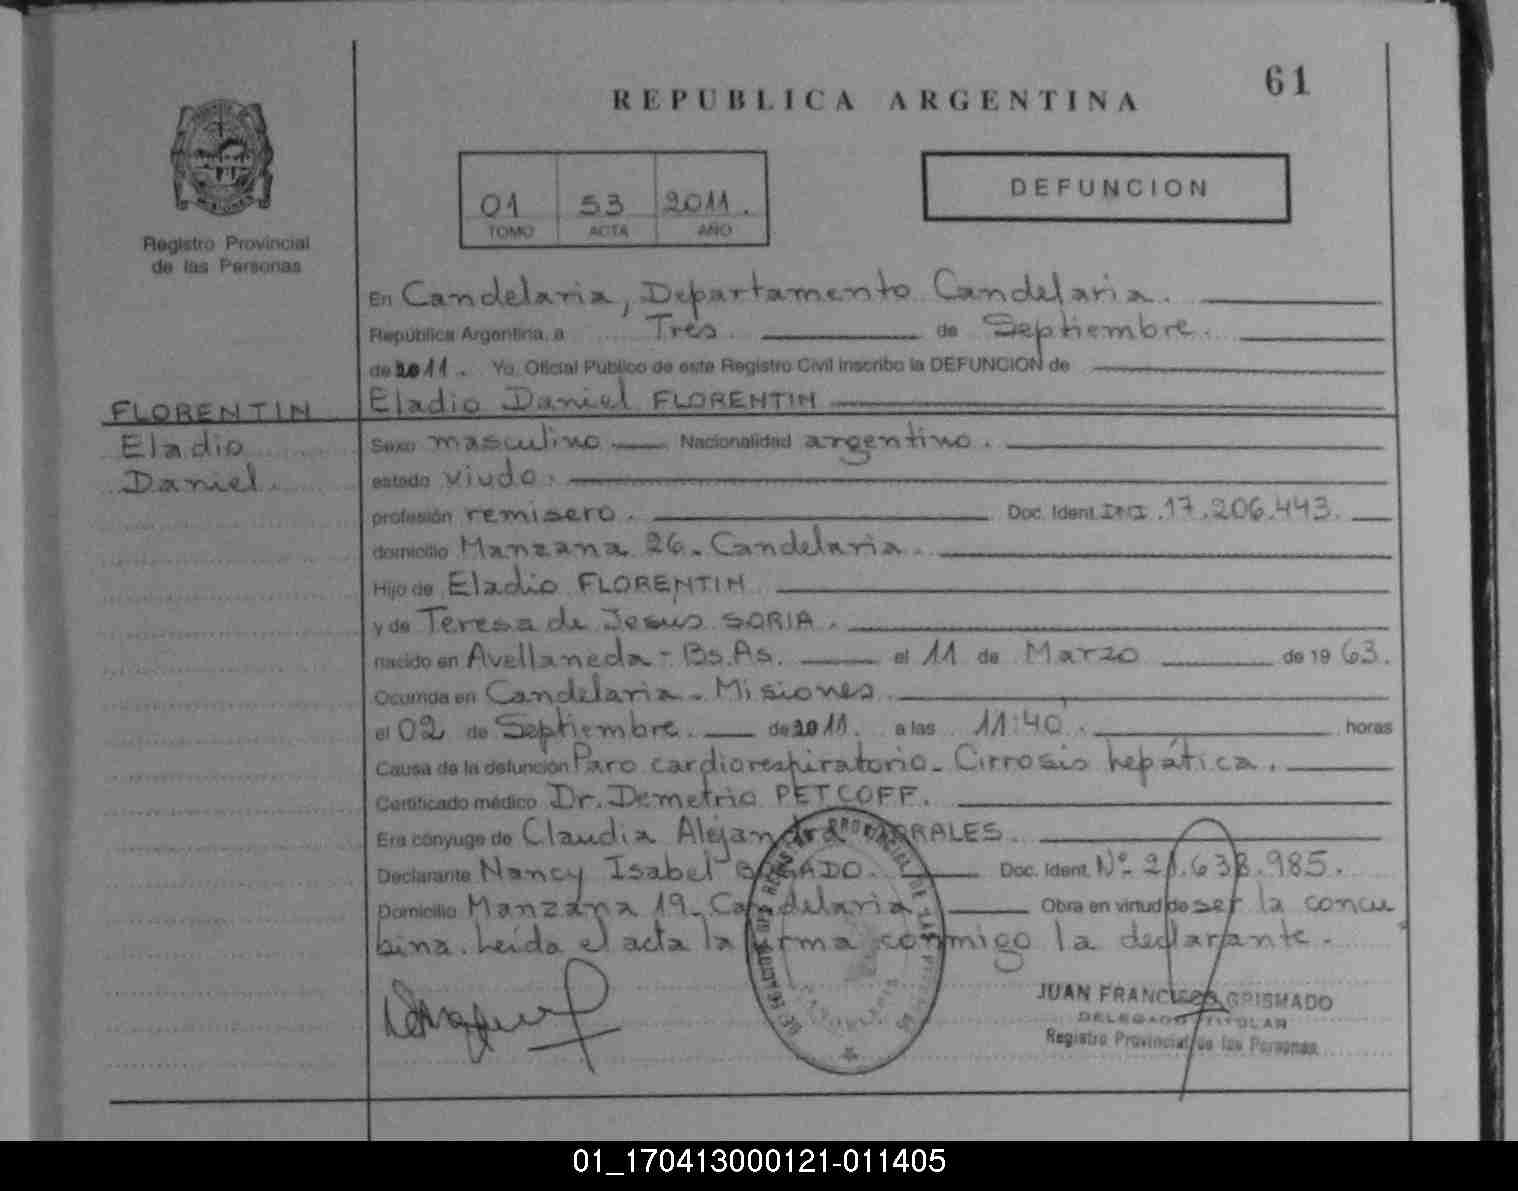 61
REPUBLICA ARGENTINA
01 53 2011.
TOMO ACTA AÑO
DEFUNCION
Registro Provincial
de las Personas
En Candelaria, Departamento Candelaria.
República Argentina, a Tres de Septiembre.
de 2011. Yo, Oficial Público de este Registro Civil inscribo la DEFUNCION de
FLORENTIN
Eladio
Daniel.
Eladio Daniel FLORENTIN
Sexo masculino Nacionalidad argentino.
estado viudo.
profesión remisero. Doc. Ident. DNI. 17.206.443.
domicilio Manzana 26. Candelaria.
Hijo de Eladio FLORENTIN
y de Teresa de Jesus SORIA.
nacido en Avellaneda - Bs.As. el 11 de Marzo de 19 63.
Ocurrida en Candelaria. Misiones.
el 02 de Septiembre. de 2011. a las 11:40. horas
Causa de la defunción Paro cardiorespiratorio. Cirrosis hepática.
Certificado médico Dr. Demetrio PETCOFF.
Era cónyuge de Claudia Alejandra
Declarante Nancy Isabel Doc. Ident. Nº 21.638.985.
Domicilio Manzana 19. Candelaria Obra en virtud de ser la concu
bina. Leída el acta la firma conmigo la declarante.
JUAN FRANCISCO GRISMADO
DELEGADO TITULAR
Registro Provincial de las Personas
01_170413000121-011405